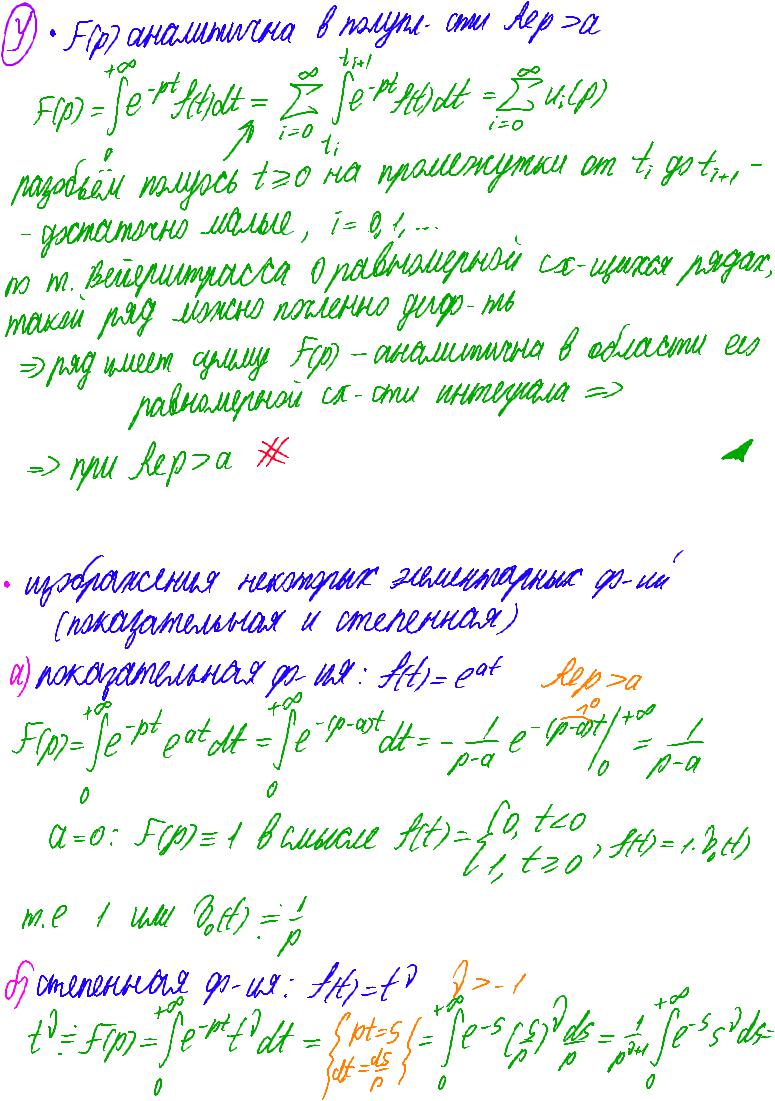 У • F(p) аналитична в полупл-сти Rep > a
F(p) = ∫₀^{+∞} e^{-pt} f(t)dt = ∑_{i=0}^{∞} ∫_{t_i}^{t_{i+1}} e^{-pt} f(t)dt = ∑_{i=0}^{∞} u_i(p)
разобьём полуось t ≥ 0 на промежутки от t_i до t_{i+1} -
- достаточно малые, i = 0, 1, ...
по т. Вейерштрасса о равномерной сх-щихся рядах,
такой ряд можно почленно диф-ть
⇒ ряд имеет сумму F(p) – аналитична в области её
равномерной сх-сти интеграла ⇒
⇒ при Rep > a #
• изображения некоторых элементарных ф-ий
(показательная и степенная)
а) показательная ф-ия: f(t) = e^{at} Rep > a
F(p) = ∫₀^{+∞} e^{-pt} e^{at} dt = ∫₀^{+∞} e^{-(p-a)t} dt = - 1/(p-a) e^{-(p-a)t} |₀^{+∞} = 1/(p-a)
a = 0: F(p) ≡ 1 в смысле f(t) = { 0, t < 0; 1, t ≥ 0 , f(t) = 1·γ₀(t)
т.е 1 или γ₀(t) ≓ 1/p
б) степенная ф-ия: f(t) = t^ν ν > -1
t^ν ≓ F(p) = ∫₀^{+∞} e^{-pt} t^ν dt = { pt = s; dt = ds/p } = ∫₀^{+∞} e^{-s} (s/p)^ν ds/p = 1/p^{ν+1} ∫₀^{+∞} e^{-s} s^ν ds =